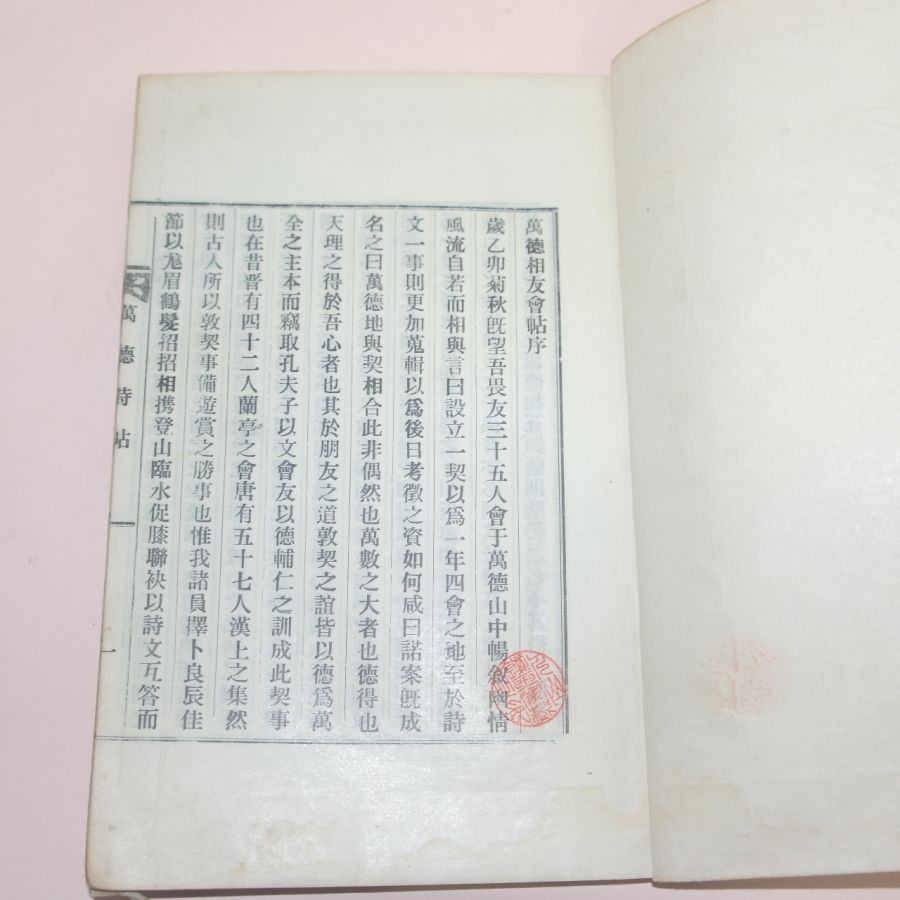 萬德相友會帖序
歲乙卯菊秋旣望吾畏友三十五人會于萬德山中暢敘幽情
風流自若而相與言曰設立一契以爲一年四會之地至於詩
文一事則更加蒐輯以爲後日考徵之資如何咸曰諾案旣成
名之曰萬德地與契相合此非偶然也萬數之大者也德得也
天理之得於吾心者也其於朋友之道敦契之誼皆以德爲萬
全之主本而竊取孔夫子以文會友以德輔仁之訓成此契事
也在昔晋有四十二人蘭亭之會唐有五十七人漢上之集然
則古人所以敦契事備遊賞之勝事也惟我諸員擇卜良辰佳
節以尨眉鶴髮招招相携登山臨水促膝聯袂以詩文互答而
萬德詩帖
一